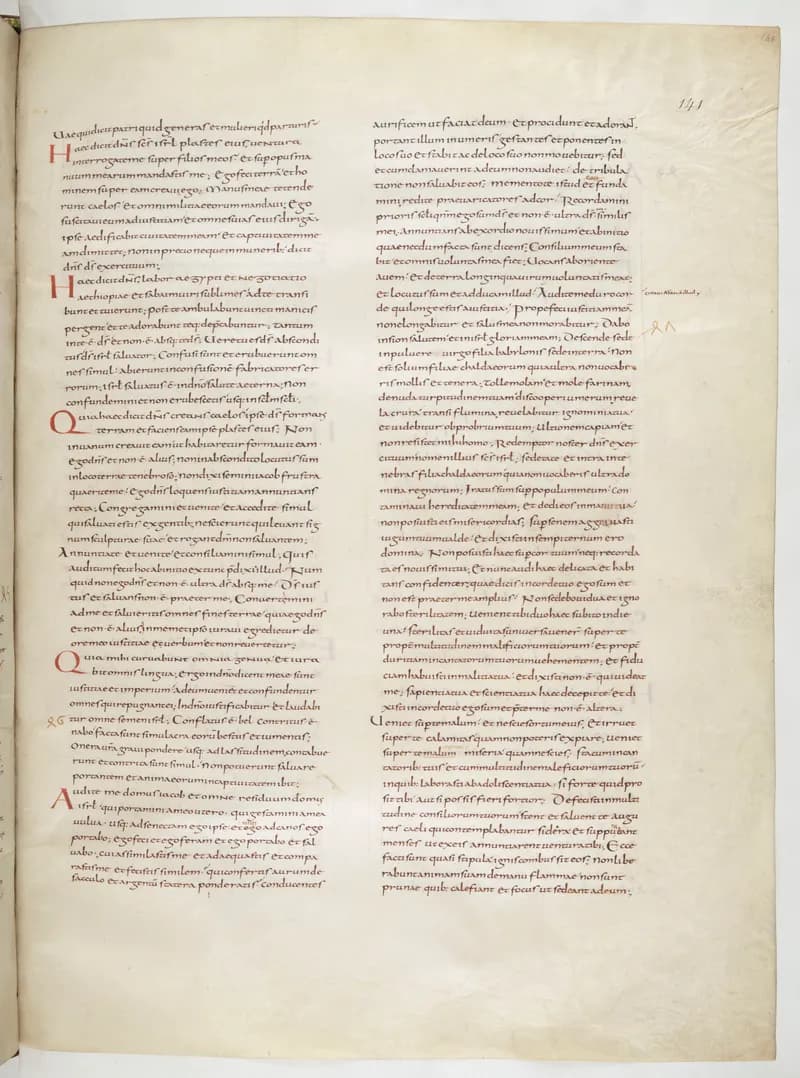 141
Uae qui dicit patri quid generas et mulieri qd parturis
Haec dicit dns scs isrl plastes eius uentura
interrogate me super filios meos et sup opus ma
nuum mearum mandastis me; Ego feci terrā et ho
minem super eam creaui ego; Manus meae tetende
runt caelos et omni militiae eorum mandaui; Ego
suscitaui eum ad iustitiam et omnes uias eius dirigā;
ipse aedificabit ciuitatem meam et captiuitatem me
am dimittet; non in precio neque in muneribus dicit
dns ds exercituum;
Haec dicit dns; labor aegypti et negotiatio
aethiopiae et sabaim uiri sublimes ad te transi
bunt et tui erunt; post te ambulabunt uincti manicis
pergent et te adorabunt teq; depcabuntur; tantum
in te ē ds et non ē absq; te ds; Uere tu es ds abscondi
tus ds isrl saluator; Confusi sunt et erubuerunt om
nes simul abierunt in confusionē fabricatores er
rorum; isrl saluatus ē in dno salute aeterna; non
confundemini et non erubescetis usq; in sclm scli;
Quia haec dicit dns creans caelos ipse ds formans
terram et faciens eam ipse plastes eius; Non
in uanum creauit eam ut habitaretur formauit eam
ego dns et non ē alius; non in abscondito locutus sum
in loco terrae tenebroso; non dixi semini iacob frustra
quaerite me; Ego dns loquens iustitiam annuntians
recta; Congregamini et uenite et accedite simul
qui saluati estis ex gentib; nescierunt qui leuant sig
num sculpturae suae et rogant dm non saluantem;
Annuntiate et uenite et consiliamini simul; Quis
auditum fecit hoc ab initio ex tunc pdixit illud; Num
quid non ego dns et non ē ultra ds absq; me; Ds ius
tus et saluans non ē praeter me; Conuertemini
ad me et salui eritis omnes fines terrae quia ego dns
et non ē alius; in memet ipso iuraui egredietur de
ore meo iustitiae uerbum et non reuertetur;
Quia mihi curuabunt omnia genua et iura
bit omnis lingua; ergo in dno dicent meae sunt
iustitiae et imperium ad eum uenient et confundentur
omnes qui repugnant ei; In dno iustificabitur et laudabi
tur omne semen isrl; Conflatus ē bel contritus ē
nabo facta sunt simulacra eorū bestiis et iumentis;
Onera uestra graui pondere usq; ad lassitudinem; contabue
runt et contrita sunt simul; Non potuerunt saluare
portantem et anima eorum in captiuitatem ibit;
Audite me domus iacob et omne residuum domus
isrl qui portamini a meo utero; qui gestamini a mea
uulua usq; ad senectam ego ipse et ego ad canos ego
portabo; ego feci et ego feram et ego portabo et sal
uabo; cui assimilastis me et adaequastis et compa
rastis me et fecistis similem qui confertis aurum de
sacculo et argentū statera ponderatis conducentes
aurificem ut faciat deum et procidunt et adorant;
portant illum in umeris gestantes et ponentes in
loco suo et stabit ac de loco suo non mouebitur; sed
et cum clamauerint ad eum non audiet de tribula
tione non saluabit eos; mementote istud et funda
mini redite praeuaricatores ad cor; Recordamini
prioris scli qnm ego sum ds et non ē ultra ds similis
mei; Annuntians ab exordio nouissimum et ab initio
quae necdum facta sunt dicens; Consilium meum sta
bit et omnis uoluntas mea fiet; Uocans ab oriente
auem et de terra longinqua uirum uoluntatis meae;
et locutus sum et adducam illud; Audite me duro cor
de qui longe estis a iustitia; Prope feci iustitiam meā
non elongabitur et salus mea non morabitur; Dabo
in sion salutem et in isrl gloriam meam; Descende sede
in puluere uirgo filia babylonis sede in terra Non
est solium filiae chaldaeorum quia ultra non uocabe
ris mollis et tenera; Tolle molam et mole farinam;
denuda turpitudinem tuam discooperi umerum reue
la crura transi flumina; reuelabitur ignominia tua
et uidebitur obprobrium tuum; Ultionem capiam et
non resistet mihi homo; Redemptor noster dns exer
cituum nomen illius scs isrl; sede tace et intra in te
nebras filia chaldaeorum quia non uocaberis ultra do
mina regnorum; Iratus sum sup populum meum con
taminaui hereditatem meam; et dedi eos in manu tua
non posuisti eis misericordias; sup senem aggrauasti
iugum tuum ualde et dixisti in sempiternum ero
domina; Non posuisti haec sup cor tuum neq; recorda
ta es nouissimi tui; Et nunc audi haec delicata et habi
tans confidenter; quae dicis in corde tuo ego sum et
non est praeter me amplius Non sedebo uidua et igno
rabo sterilitatem; Uenient tibi duo haec subito in die
una sterilitas et uiduitas uniuersa uenerunt super te
propt multitudinem maleficiorum tuorum et propt
duritiam incantatorum tuorum uehementem; et fidu
ciam habuisti in malitia tua et dixisti non ē qui uideat
me; sapientia tua et scientia tua haec decepit te et di
xisti in corde tuo ego sum et pter me non ē altera;
Ueniet sup te malum et nescies ortum eius; et irruet
super te calamitas quam non poteris expiare; ueniet
super te malum miseria quam nescies; sta cum incan
tatorib; tuis et cum multitudine maleficiorum tuorū
in quib; laborasti ab adolescentia tua si forte quid pro
sit tibi aut si possis fieri fortior; Defecisti in multi
tudine consiliorum tuorum stent et saluent te augu
res caeli qui contemplabantur sidera et supputabant
menses ut ex eis annuntiarent uentura tibi; Ecce
facti sunt quasi stipula; ignis combussit eos; Non libe
rabunt animam suam de manu flammae non sunt
prunae quib; calefiant et focus ut sedeant ad eum;